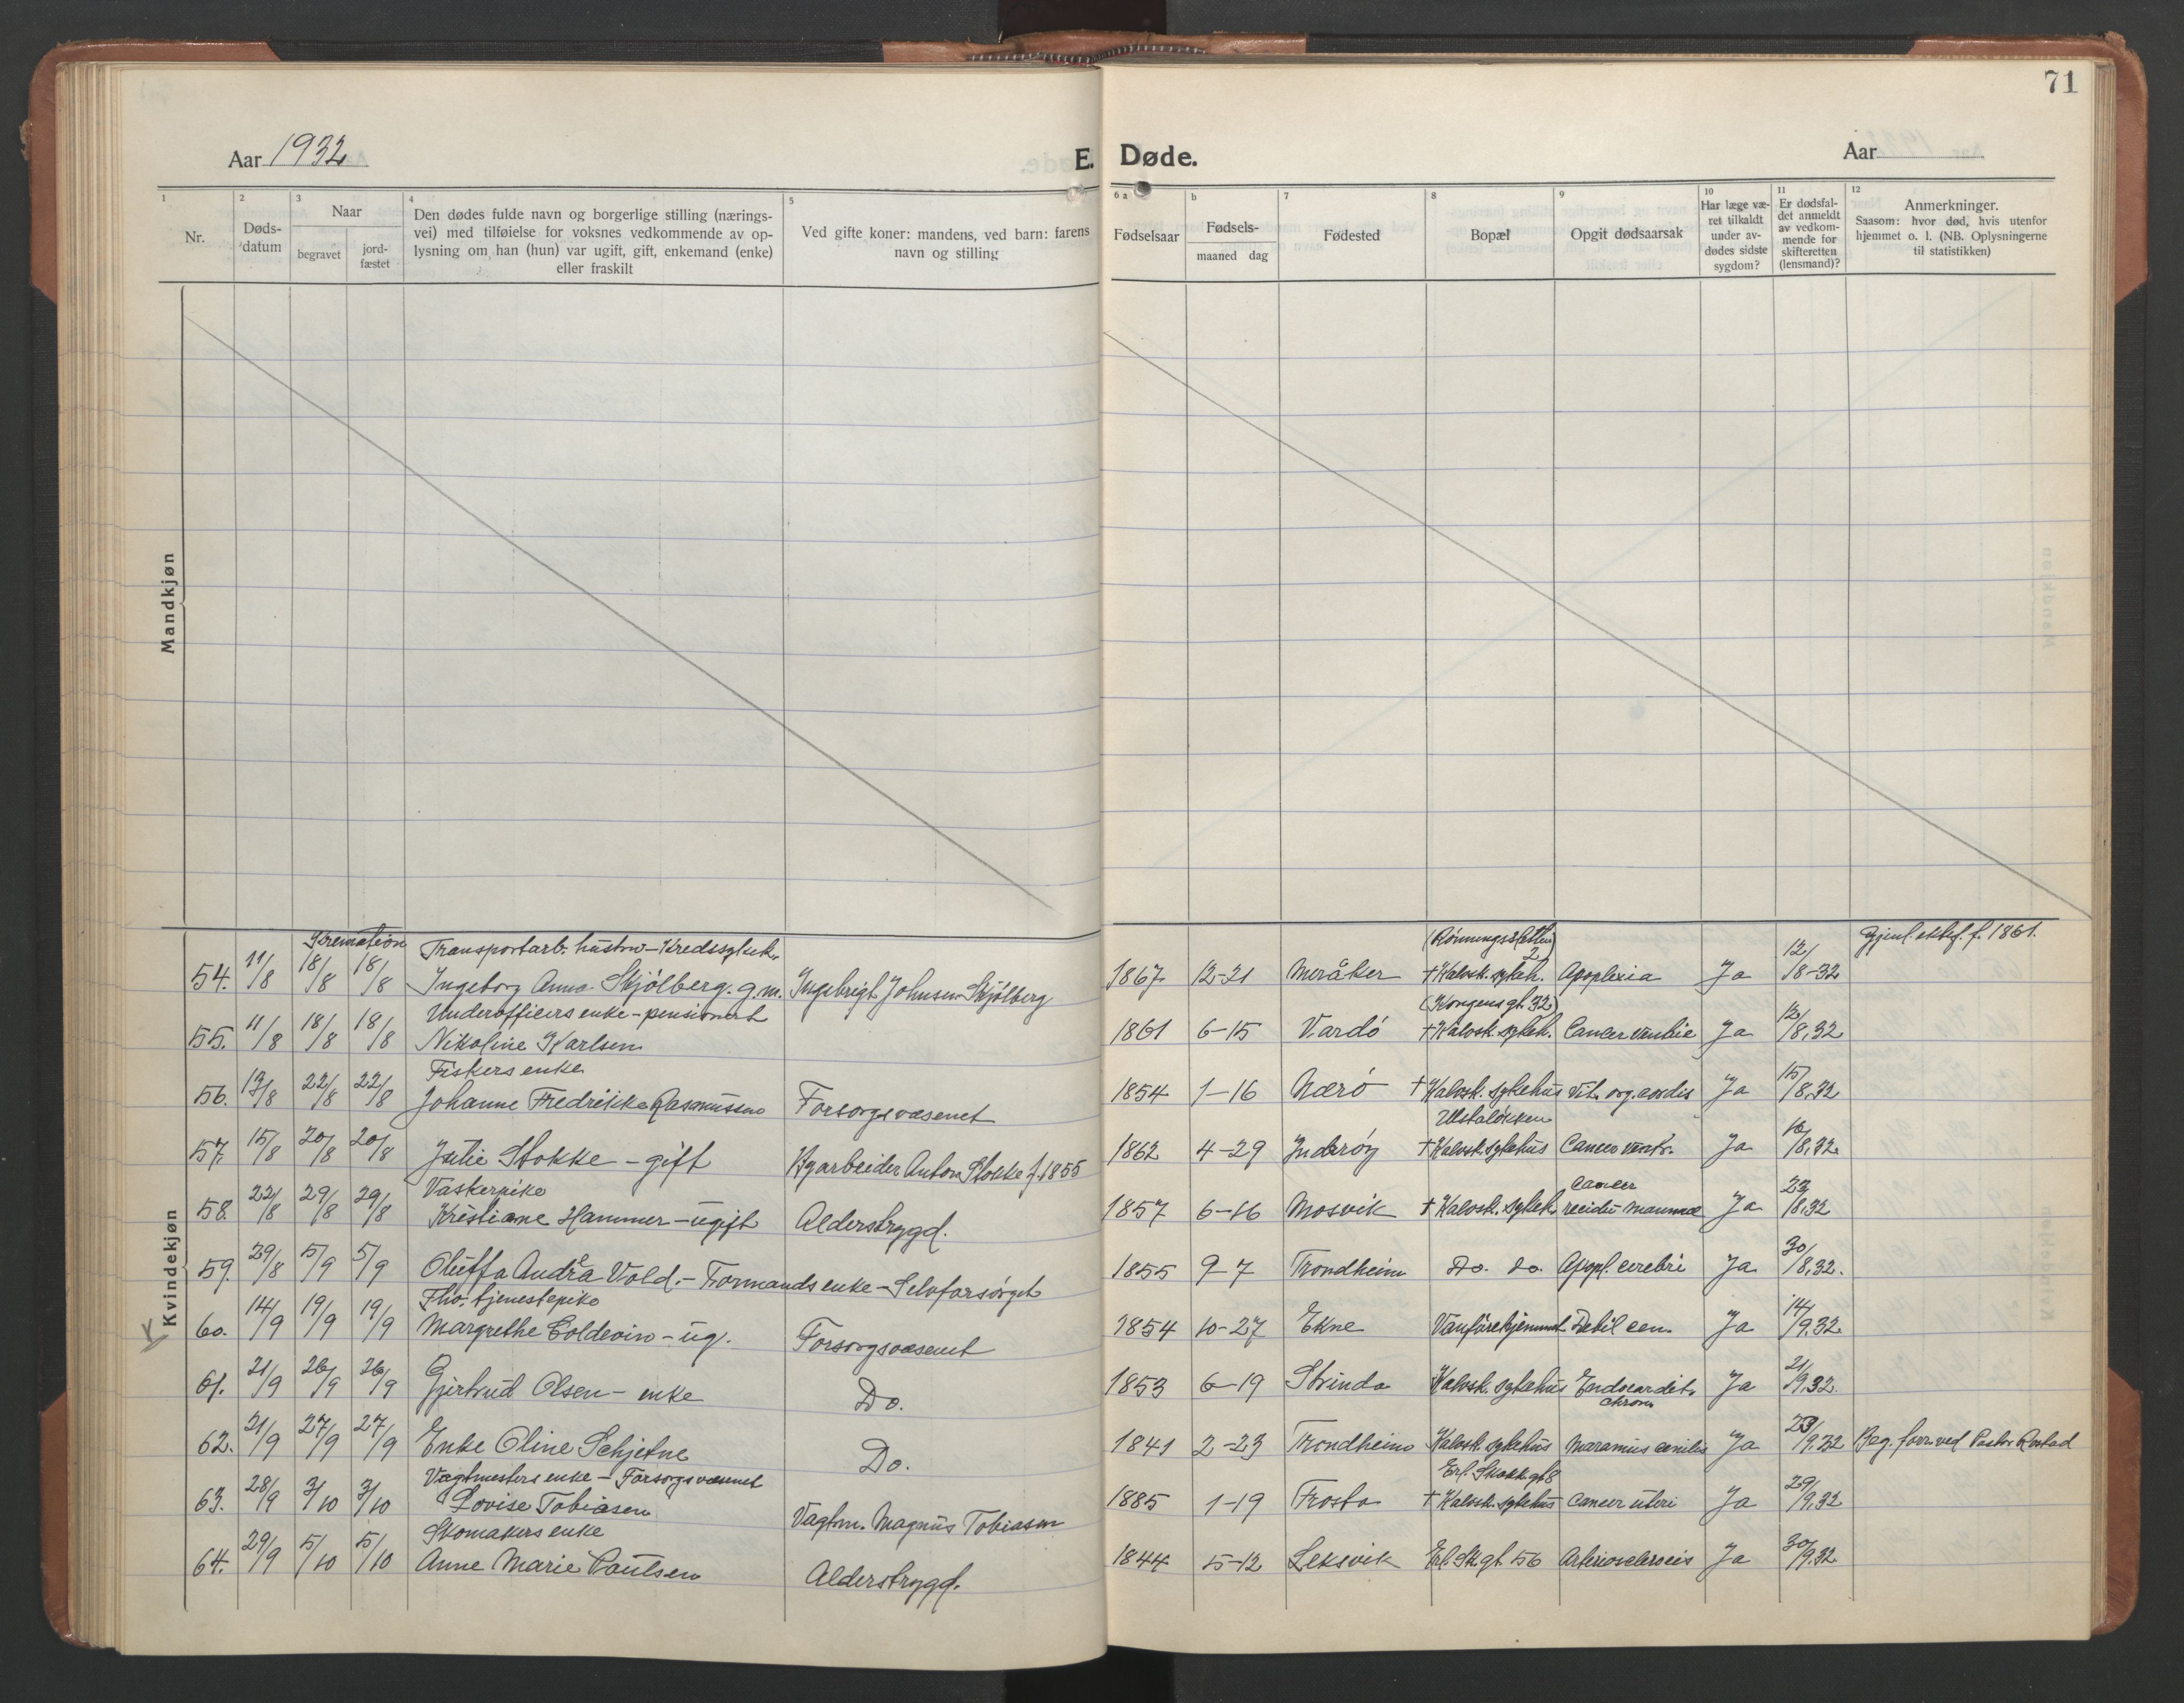 71
Aar 1932
E. Døde.
Aar
1
Nr.
2
Døds-
datum
3
Naar
begravet
jord-
fæstet
4
Den dødes fulde navn og borgerlige stilling (nærings-
vei) med tilføielse for voksnes vedkommende av op-
lysning om han (hun) var ugift, gift, enkemand (enke)
eller fraskilt
5
Ved gifte koner: mandens, ved barn: farens
navn og stilling
6 a
Fødselsaar
b
Fødsels-
maaned dag
7
Fødested
8
Bopæl
9
Opgit dødsaarsak
10
Har læge væ-
ret tilkaldt
under av-
dødes sidste
sygdom?
11
Er dødsfal-
det anmeldt
av vedkom-
mende for
skifteretten
(lensmand)?
12
Anmerkninger.
Saasom: hvor død, hvis utenfor
hjemmet o. l. (NB. Oplysningerne
til statistikken)
Mandkjøn
Kvindekjøn
Kremation Transportarb. hustru - Kredssykek. (Rønningsletten 2) Gjenl. ektef. f. 1861.
54. 11/8 18/8 18/8 Ingeborg Anna Skjølberg. g.m. Ingebrigt Johnsen Skjølberg 1867 12-21 Meråker † Kalvsk. sykeh. Apoplexia Ja 12/8-32
Underofficers enke - pensionert (Kongens gt. 32)
55. 11/8 18/8 18/8 Nikoline Karlsen 1861 6-15 Vardø † Kalvsk. sykeh. Cancer Ja 12/8.32
Fiskers enke
56. 13/8 22/8 22/8 Johanne Fredrikke Rasmussen Forsorgsvæsenet 1854 1-16 Nærø † Kalvsk. sykehus Vit. org. cordis Ja 15/8.32
57. 15/8 20/8 20/8 Julie Stokke - gift Byarbeider Anton Stokke f. 1855 1862 4-29 Inderøy † Kalvsk. sykehus Cancer ventr. Ja 16/8.32
Vaskerpike Cancer
58. 22/8 29/8 29/8 Kristiane Hammer - ugift Alderstrygd. 1857 6-16 Mosvik † Kalvsk. sykeh. recidiv mammae Ja 23/8.32
59. 29/8 5/9 5/9 Oluffa Andrea Vold. - Formands enke - Selvforsørget 1855 9-7 Trondheim Do. do. Apopl. cerebri Ja 30/8.32.
Fho. tjenestepike
60. 14/9 19/9 19/9 Margrethe Coldevin - ug. Forsorgsvæsenet 1854 10-27 Ekne Vanførehjemmet Debil sen. Ja 14/9.32.
61. 21/9 26/9 26/9 Gjertrud Olsen - enke Do. 1853 6-19 Strinda Kalvsk. sykehus Endocardit. Ja 21/9.32.
chron.
62. 21/9 27/9 27/9 Enke Oline Schjetne Do. 1841 2-23 Trondheim Kalvsk. sykehus Marasmus senilis Ja 23/9.32 Beg. forr. ved Pastor Rostad
Vagtmesters enke - Forsorgsvæsenet Erl. Skakk gt 8
63. 28/9 3/10 3/10 Lovise Tobiasen Vagtm. Magnus Tobiasen 1885 1-19 Frosta † Kalvsk. sykehus Cancer uteri Ja 29/9.32
Skomakers enke
64. 29/9 5/10 5/10 Anne Marie Paulsen Alderstrygd. 1844 5-12 Leksvik Erl. Sk. gt 56 Arteriosclerosis Ja 30/9.32